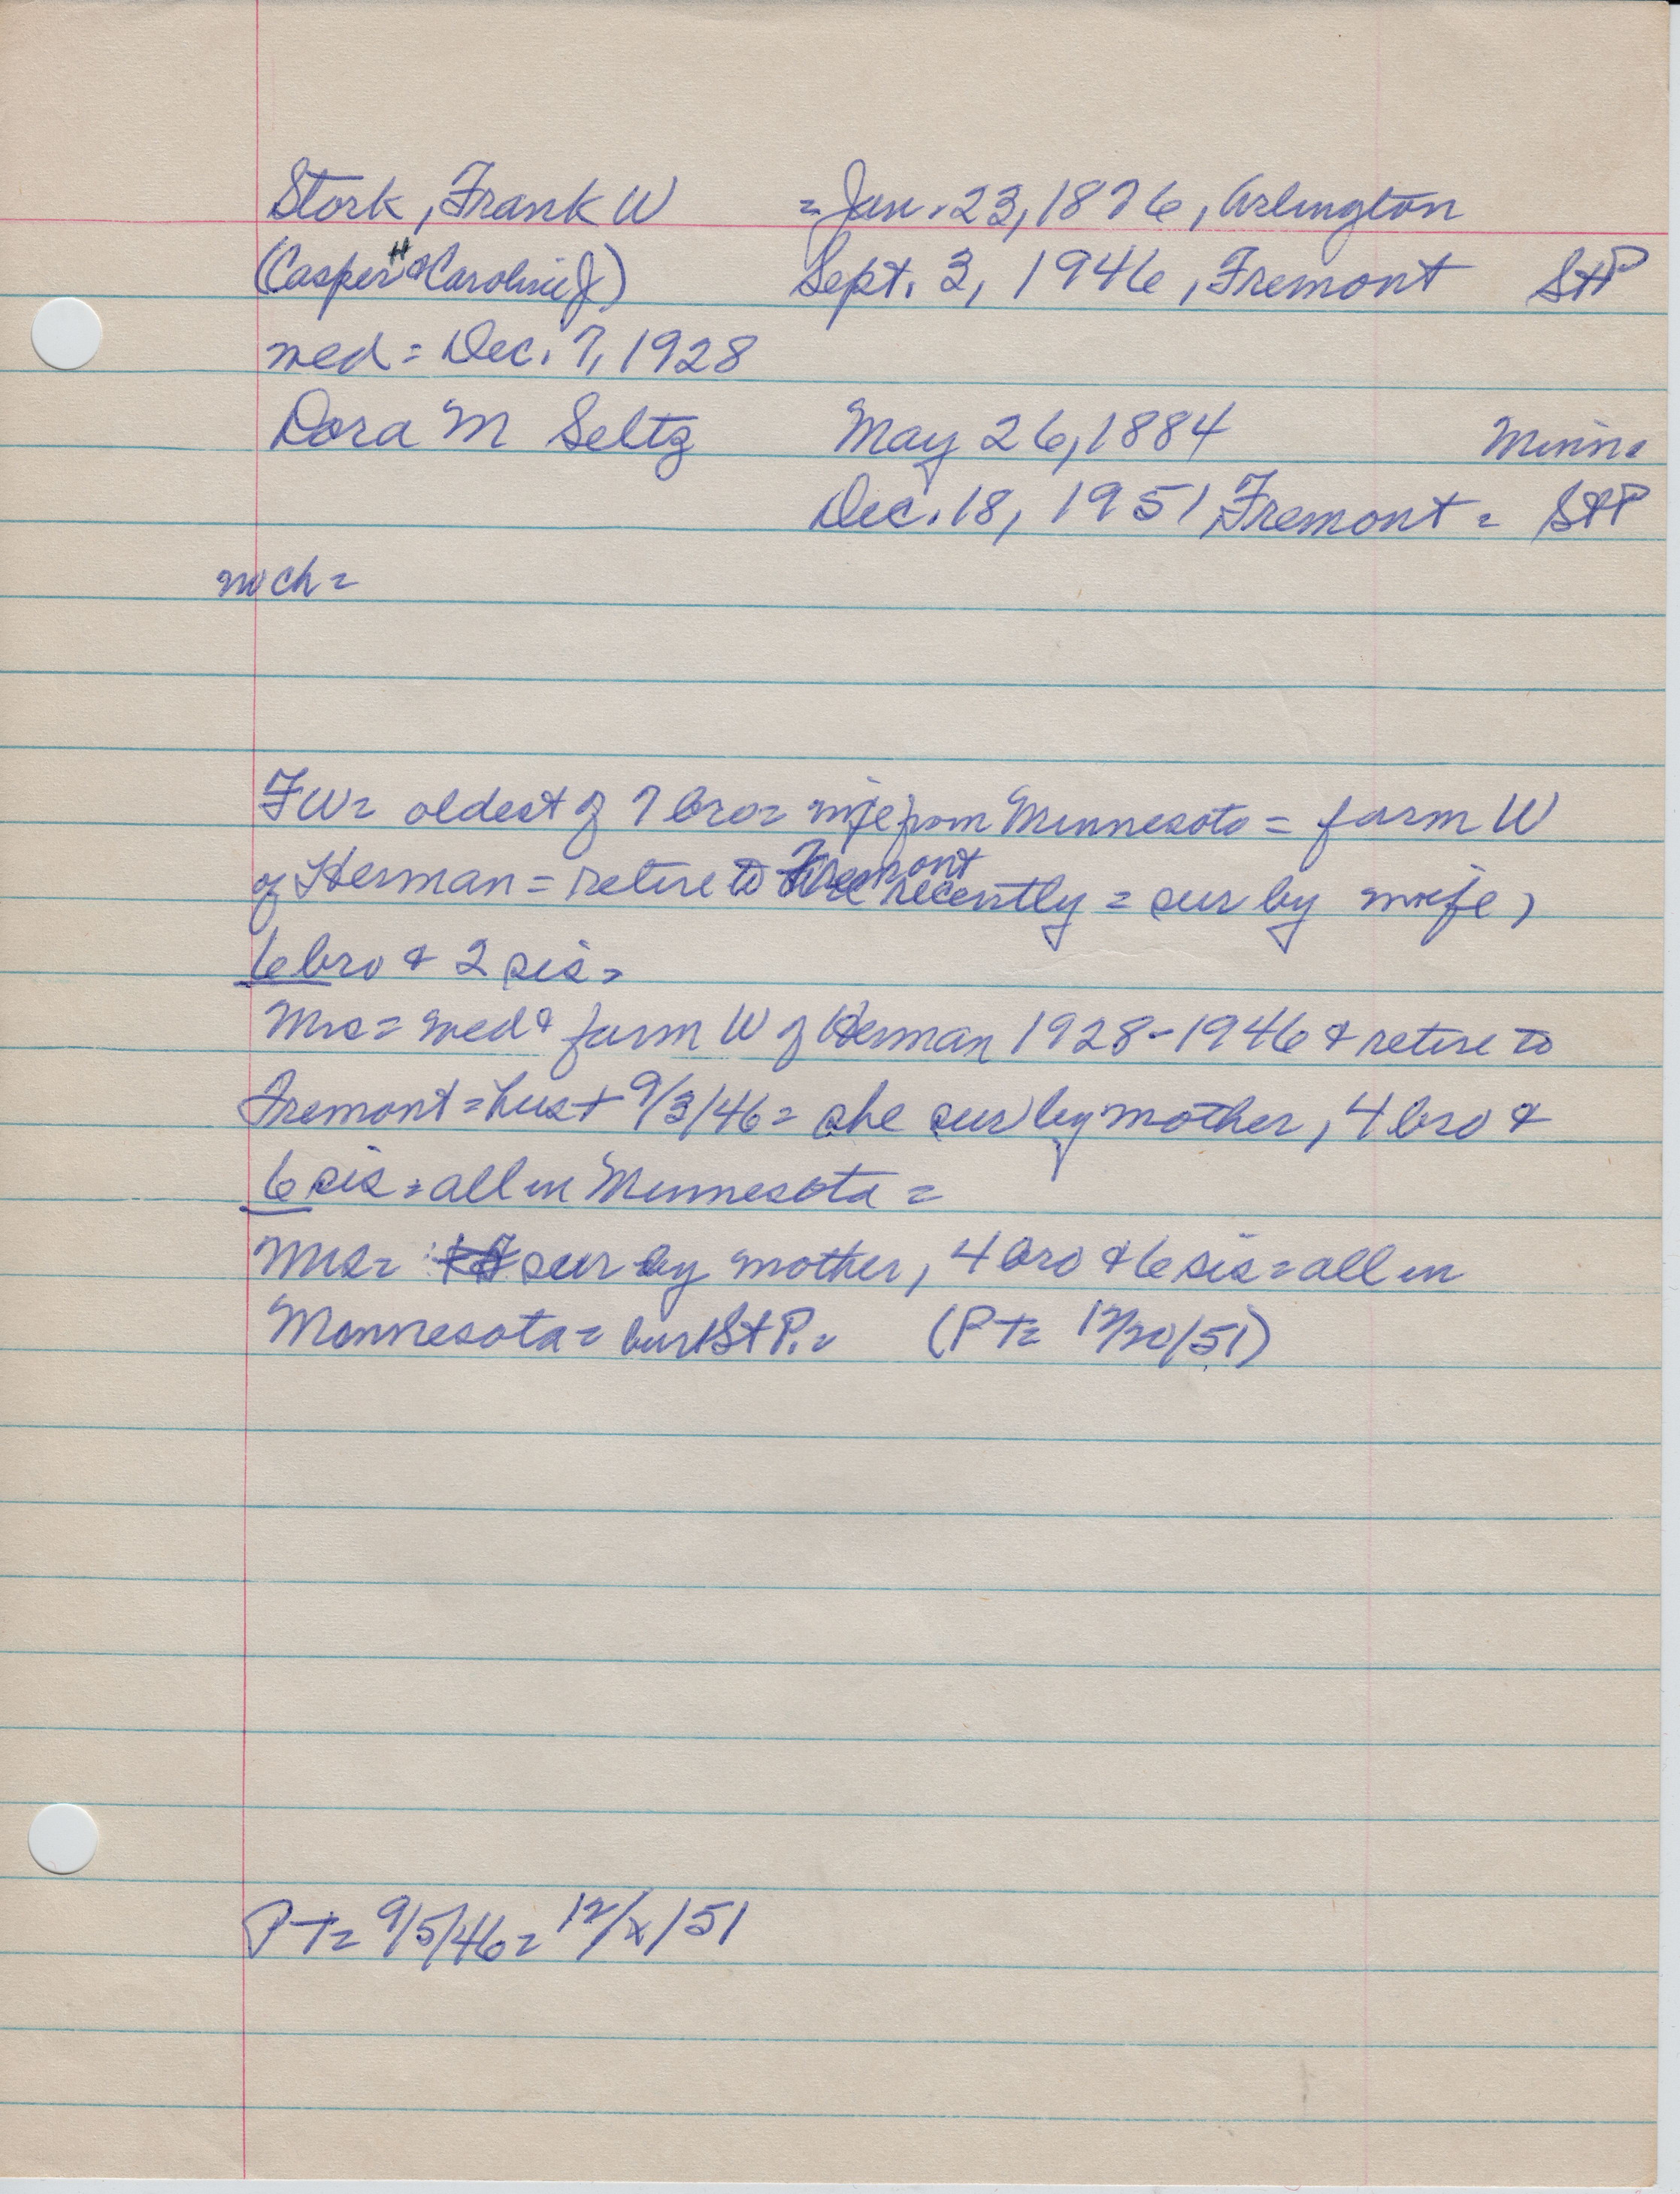 Stork, Frank W = Jan. 23, 1876, Arlington
(Casper H & Caroline J) Sept. 3, 1946, Fremont StP
wed = Dec. 7, 1928
Dora M Seltz May 26, 1884 Minn=
Dec. 18, 1951 Fremont = StP
no ch =
FW= oldest of 7 bro= wife from Minnesota = farm W
of Herman = retire to Fremont recently = sur by wife,
6 bro & 2 sis=
Mrs = wed & farm W of Herman 1928-1946 & retire to
Fremont = hus + 9/3/46 = she sur by mother, 4 bro &
6 sis = all in Minnesota =
Mrs= sur by mother, 4 bro & 6 sis = all in
Monnesota = bur St P. = (PT= 12/20/51)
PT= 9/5/46= 12/x/51